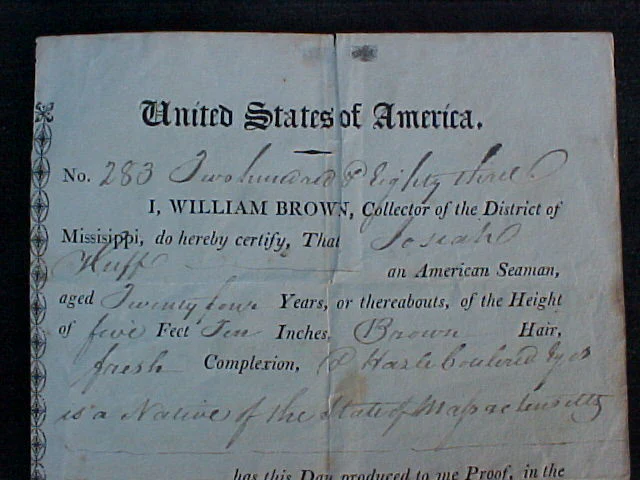 United States of America.
No. 283 Two hundred & Eighty three
I, WILLIAM BROWN, Collector of the District of
Missisippi, do hereby certify, That Josiah
Huff an American Seaman,
aged Twenty four Years, or thereabouts, of the Height
of five Feet Ten Inches, Brown Hair,
fresh Complexion, & Hazle Couloured Eyes
is a Native of the State of Massachusetts
has this Day produced to me Proof, in the